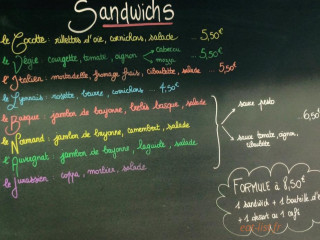 Sandwichs
la Cocotte : rillettes d'oie, cornichons, salade ... 5,50€
le Végie : courgette, tomate, oignon ... 5,50€
l'Italien : mortadelle, fromage frais, ciboulette, salade ... 5,50€
le Lyonnais : rosette, beurre, cornichons 4,50€
le Basque : jambon de bayonne, brebis basque, salade
le Normand : jambon de bayonne, camembert, salade
l'Auvergnat : jambon de bayonne, laguiole, salade
le Jurassien : coppa, morbier, salade
sauce pesto
6,50€
sauce tomate, oignon, ciboulette
FORMULE à 8,50€
1 sandwich + 1 bouteille d'
+ 1 dessert ou 1 café